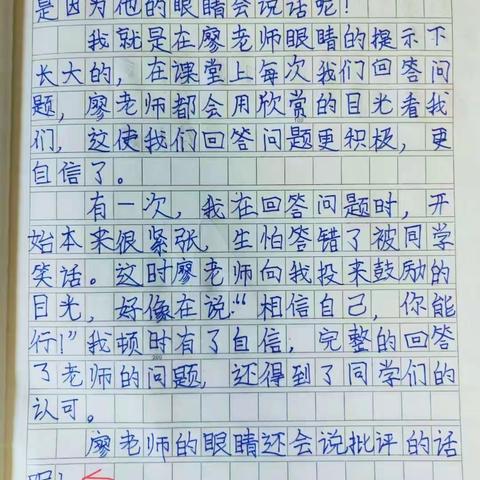 是因为他的眼睛会说话呢！
我就是在廖老师眼睛的提示下
长大的，在课堂上每次我们回答问
题，廖老师都会用欣赏的目光看我
们，这使我们回答问题更积极，更
自信了。
有一次，我在回答问题时，开
始本来很紧张，生怕答错了被同学
笑话。这时廖老师向我投来鼓励的
目光，好像在说：“相信自己，你能
行！”我顿时有了自信，完整的回答
了老师的问题，还得到了同学们的
认可。
廖老师的眼睛还会说批评的话
呢！